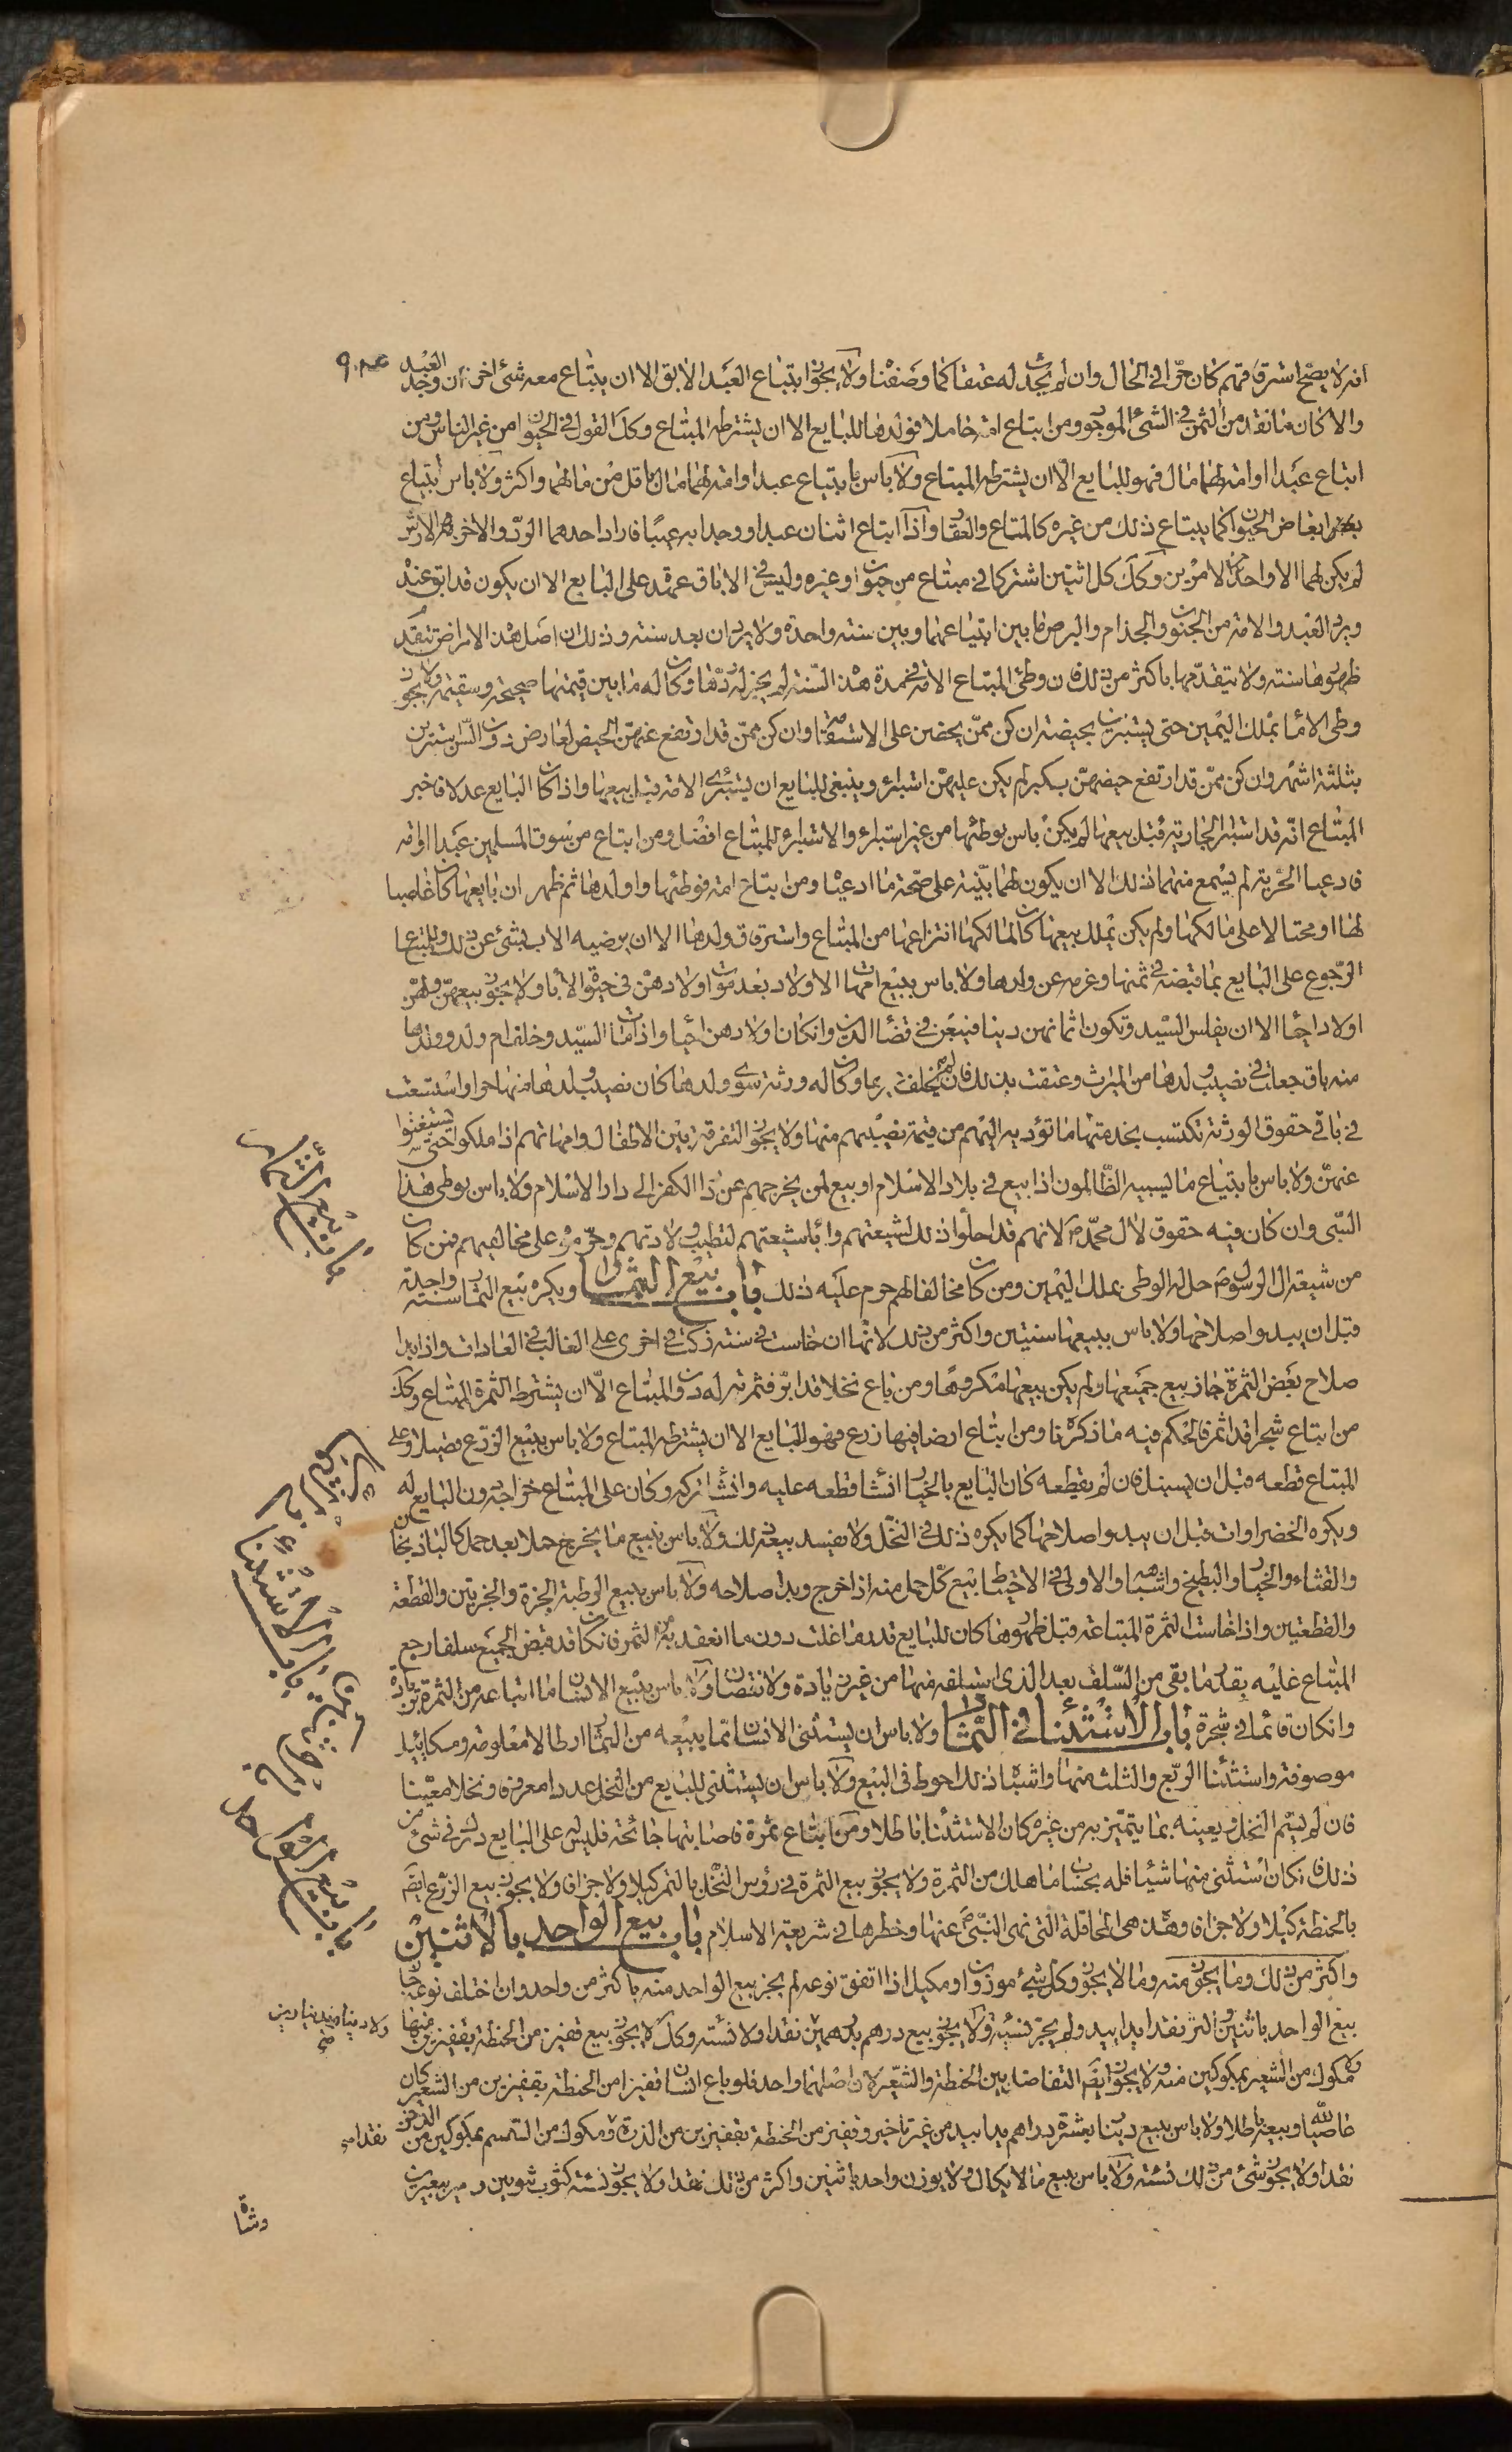 انه لا يصح استرقاقهم كان حرا في الحال وان لم يجدد له عتقا كما وصفنا ولا يجوز ابتياع العبد الابق الا ان يبتاع معه شئ اخر فان وجد العبد
والا كان ما نقد من الثمن في الشئ الموجود ومن ابتاع امة حاملا فولدها للبايع الا ان يشترطه المبتاع وكك القول في الحيوان من غير الناس ومن
ابتاع عبدا او امة لهما مال فهو للبايع الا ان يشترطه المبتاع ولا باس بابتياع عبد او امة لهما مال باقل من مالهما واكثر ولا باس بابتياع
ابعاض الحيوان كما يبتاع ذلك من غيره كالمتاع والعقار واذا ابتاع اثنان عبدا ووجدا به عيبا فاراد احدهما الرد والاخر الارش
لم يكن لهما الا واحد من الامرين وكك كل اثنين اشتركا في مبتاع من حيوان او غيره وليس في الاباق عهدة على البايع الا ان يكون قد ابق عنده
ويرد العبد والامة من الجنون والجذام والبرص ما بين ابتياعهما وبين سنة واحدة ولا يردان بعد سنة وذلك ان اصل هذه الامراض يتقدم
ظهورها سنة ولا يتقدمها باكثر من ذلك فان وطئ المبتاع الامة في مدة هذه السنة لم يجز له ردها وكان له ما بين قيمتها صحيحة وسقيمة ولا يجوز
وطئ الاماء بملك اليمين حتى يستبرئن بحيضة ان كن ممن يحضن على الاستقامة وان كن ممن قد ارتفع عنهن الحيض لعارض دون السن استبرئن
بثلثة اشهر وان كن ممن قد ارتفع حيضهن بكبر لم يكن عليهن استبراء وينبغي للبايع ان يستبرئ الامة قبل بيعها واذا كان البايع عدلا فاخبر
المبتاع انه قد استبرأ الجارية قبل بيعها لم يكن باس بوطئها من غير استبراء والاستبراء للمبتاع افضل ومن ابتاع من سوق المسلمين عبدا او امة
فادعيا الحرية لم يسمع منهما ذلك الا ان يكون لهما بينة على صحة ما ادعيا ومن ابتاع امة فوطئها واولدها ثم ظهر ان بايعها كان غاصبا
لها او محتالا على مالكها ولم يكن يملك بيعها كان لمالكها انتزاعها من المبتاع واسترقاق ولدها الا ان يرضيه الاب بشئ عن ذلك وللمبتاع
الرجوع على البايع بما قبضه في ثمنها وغرمه عن ولدها ولا باس ببيع امهات الاولاد بعد موت اولادهن في حيوة الاباء ولا يجوز بيعهن ولهن
اولاد احياء الا ان يفلس السيد وتكون اثمانهن دينا فيبعن في قضاء الدين وان كان اولادهن احياء واذا مات السيد وخلف ام ولد وولدها
منه باق جعلت في نصيب ولدها من الميراث وعتقت بذلك فان لم يخلف غيرها وكان له ورثة سوى ولدها كان نصيب ولدها منها حرا واستسعت
في باقي حقوق الورثة تكتسب بخدمتها ما تؤديه اليهم من قيمة نصيبهم منها ولا يجوز التفرقة بين الاطفال وامهاتهم اذا ملكوا حتى يستغنوا
عنهن ولا باس بابتياع ما يسبيه الظالمون اذا بيع في بلاد الاسلام او بيع لمن يخرجهم عن دار الكفر الى دار الاسلام ولا باس بوطئ هذا
السبى وان كان فيه حقوق لال محمد ص لانهم قد احلوا ذلك لشيعتهم واباء شيعتهم لتطيب ولادتهم وحرموه على مخالفيهم فمن كان
من شيعة ال الرسول ص حل له الوطى بملك اليمين ومن كان مخالفا لهم حرم عليه ذلك باب ١٨ بيع الثمار ويكره بيع الثمار سنة واحدة
قبل ان يبدو اصلاحها ولا باس ببيعها سنتين واكثر من ذلك لانها ان خاست في سنة زكت في اخرى على الغالب في العادات واذا بدا
صلاح بعض الثمرة جاز بيع جميعها ولم يكن بيعها مكروها ومن باع نخلا قد ابر فثمرته له دون المبتاع الا ان يشترط الثمرة المبتاع وكك
من ابتاع شجرا قد اثمر فالحكم فيه ما ذكرناه ومن ابتاع ارضا فيها زرع فهو للبايع الا ان يشترطه المبتاع ولا باس ببيع الزرع قصيلا وعلى
المبتاع قطعه قبل ان يسنبل فان لم يقطعه كان البايع بالخيار ان شاء قطعه عليه وان شاء تركه وكان على المبتاع خراجه دون البايع
ويكره بيع الخضراوات قبل ان يبدو اصلاحها كما يكره ذلك في النخل ولا يفسد بيعه ذلك ولا باس ببيع ما يخرج حملا بعد حمل كالباذنجان
والقثاء والخيار والبطيخ واشباهه والاولى في الاحتياط بيع كل حمل منه اذا خرج وبدا صلاحه ولا باس ببيع الرطبة الجزة والجزتين والقطعة
والقطعتين واذا خاست الثمرة المبتاعة قبل ظهورها كان للبايع قدر ما غلت دون ما انعقد به من الثمر فان كان قد قبض الجميع سلفا رجع
المبتاع عليه بقدر ما بقى من السلف بعد الذى استلفه منها من غير زيادة ولا نقصان ولا باس ببيع الانسان ما ابتاعه من الثمرة بزيادة
وان كان قائما في شجره باب ١٩ الاستثناء في الثمار ولا باس ان يستثنى الانسان مما يبيعه من الثمار ارطالا معلومة ومكائيل
موصوفة واستثناء الربع والثلث منها واشباه ذلك احوط في البيع ولا باس ان يستثنى البايع من النخل عددا معروفا ونخلا معينا
فان لم يسم النخل ويعينه بما يتميز به من غيره كان الاستثناء باطلا ومن ابتاع ثمرة فاصابتها جائحة فليس له على البايع درك في شئ من
ذلك فان كان استثنى منها شيئا فله بحساب ما هلك من الثمرة ولا يجوز بيع الثمرة في رؤس النخل بالتمر كيلا ولا جزافا ولا يجوز بيع الزرع ايضا
بالحنطة كيلا ولا جزافا وهذه هى المحاقلة التى نهى النبى ص عنها وحظرها في شريعة الاسلام باب بيع الواحد بالاثنين
واكثر من ذلك وما يجوز منه وما لا يجوز وكل شئ موزون او مكيل اذا اتفق نوعه لم يجز بيع الواحد منه باكثر من واحد وان اختلف نوعه جاز
بيع الواحد باثنين واكثر نقدا يدا بيد ولم يجز نسية ولا يجوز بيع درهم بدرهمين نقدا ولا نسئة وكك لا يجوز بيع قفيز من الحنطة بقفيزين منها
ومكوك من الشعير بمكوكين منه ولا يجوز ايضا التفاضل بين الحنطة والشعير لان اصلهما واحد فلو باع انسان قفيزا من الحنطة بقفيزين من الشعير كان
عاصيا لله وبيعه باطلا ولا باس ببيع دينار بعشرة دراهم يدا بيد من غير تاخير وقفيز من الحنطة بقفيزين من الذرة ومكوك من السمسم بمكوكين من الدخن
نقدا ولا يجوز شئ من ذلك نسئة ولا باس ببيع ما لا يكال ولا يوزن واحد باثنين واكثر من ذلك نقدا ولا يجوز نسئة كثوب بثوبين وبعير ببعيرين
وشاة
باب بيع الثمار
باب الاستثناء
باب بيع الواحد
ولا دينار بدينارين
نقدا